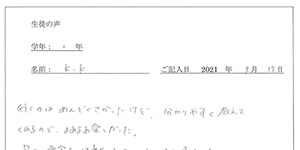 生徒の声
学年： 。 年
名前： K.K ご記入日 2021 年 9月 17日
行くのはめんどくさかったけど、分かりやすく教えて
くれるので、まあまあ楽しかった。